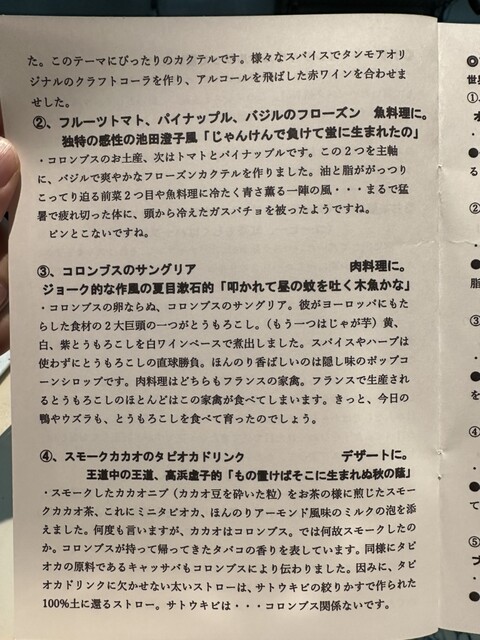 た。このテーマにぴったりのカクテルです。様々なスパイスでタンモアオリ
ジナルのクラフトコーラを作り、アルコールを飛ばした赤ワインを合わせま
せした。
②、フルーツトマト、パイナップル、バジルのフローズン　魚料理に。
独特の感性の池田澄子風「じゃんけんで負けて蛍に生まれたの」
・コロンブスのお土産、次はトマトとパイナップルです。この２つを主軸
に、バジルで爽やかなフローズンカクテルを作りました。油と脂ががっつり
こってり迫る前菜２つ目や魚料理に冷たく青さ薫る一陣の風・・・まるで猛
暑で疲れ切った体に、頭から冷えたガスパチョを被ったようですね。
ピンとこないですね。
③、コロンブスのサングリア　肉料理に。
ジョーク的な作風の夏目漱石的「叩かれて昼の蚊を吐く木魚かな」
・コロンブスの卵ならぬ、コロンブスのサングリア。彼がヨーロッパにもた
らした食材の２大巨頭の一つがとうもろこし。（もう一つはじゃが芋）黄、
白、紫とうもろこしを白ワインベースで煮出しました。スパイスやハーブは
使わずにとうもろこしの直球勝負。ほんのり香ばしいのは隠し味のポップコ
ーンシロップです。肉料理はどちらもフランスの家禽。フランスで生産され
るとうもろこしのほとんどはこの家禽が食べてしまいます。きっと、今日の
鴨やウズラも、とうもろこしを食べて育ったのでしょう。
④、スモークカカオのタピオカドリンク　デザートに。
王道中の王道、高浜虚子的「もの置けばそこに生まれぬ秋の蔭」
・スモークしたカカオニブ（カカオ豆を砕いた粒）をお茶の様に煎じたスモー
クカカオ茶、これにミニタピオカ、ほんのりアーモンド風味のミルクの泡を添
えました。何度も言いますが、カカオはコロンブス。では何故スモークしたの
か。コロンブスが持って帰ってきたタバコの香りを表しています。同様にタピ
オカの原料であるキャッサバもコロンブスにより伝わりました。因みに、タピ
オカドリンクに欠かせない太いストローは、サトウキビの絞りかすで作られた
100%土に還るストロー。サトウキビは・・・コロンブス関係ないです。